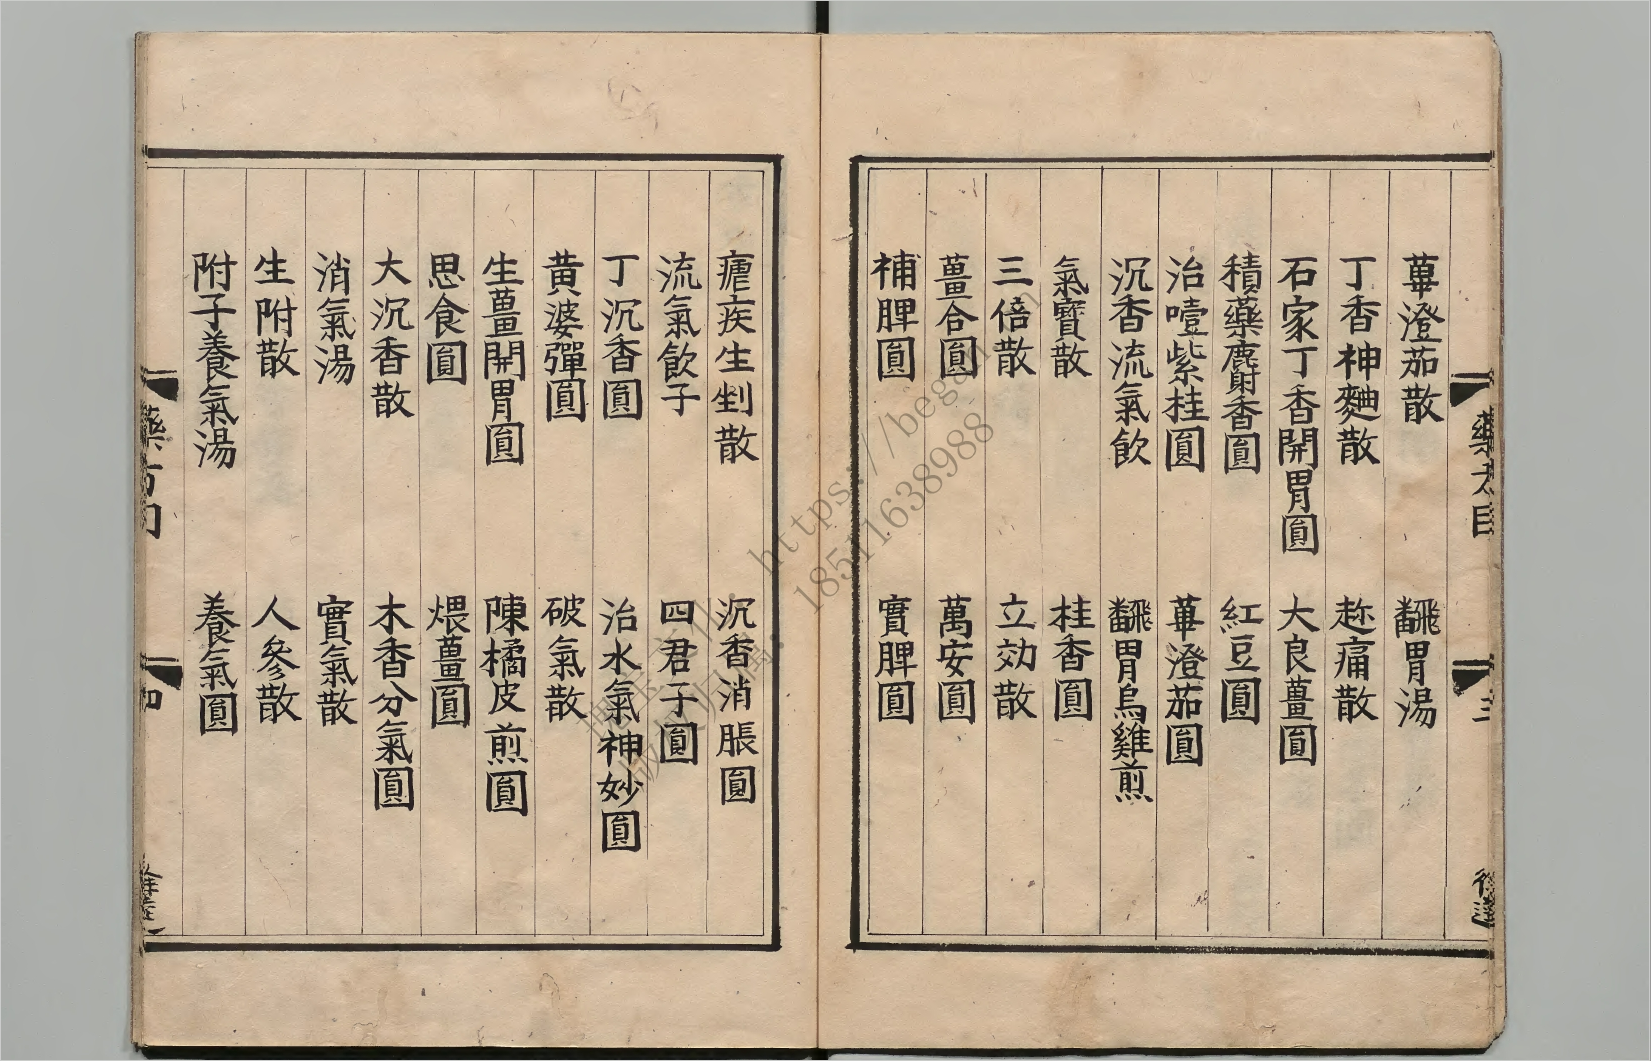 蓽澄茄散
飜胃湯
丁香神麯散
趂痛散
石家丁香開胃圓
大良薑圓
積藥麝香圓
紅豆圓
治噎紫桂圓
蓽澄茄圓
沉香流氣飲
飜胃烏雞煎
氣寶散
桂香圓
三倍散
立効散
薑合圓
萬安圓
補脾圓
實脾圓
瘧疾生剉散
沉香消脹圓
流氣飲子
四君子圓
丁沉香圓
治水氣神妙圓
黃婆彈圓
破氣散
生薑開胃圓
陳橘皮煎圓
思食圓
煨薑圓
大沉香散
木香分氣圓
消氣湯
實氣散
生附散
人參散
附子養氣湯
養氣圓
https://began
18511638988